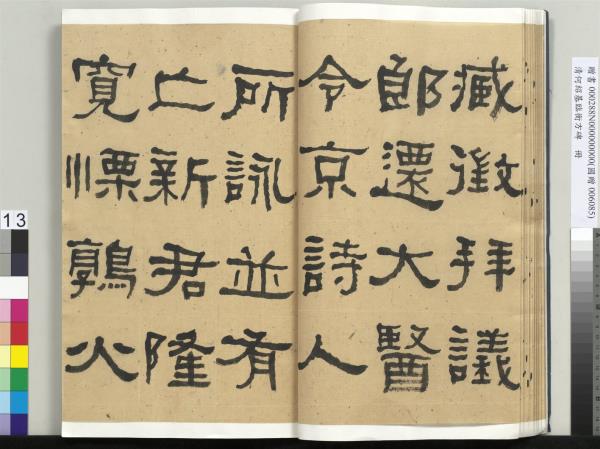 臧徵拜議
郎還大醫
令京詩人
所詠並有
亡新君隆
寬慓鶉火
贈書 000288N000000000(國贈 006085)
清何紹基臨衡方碑 冊
13